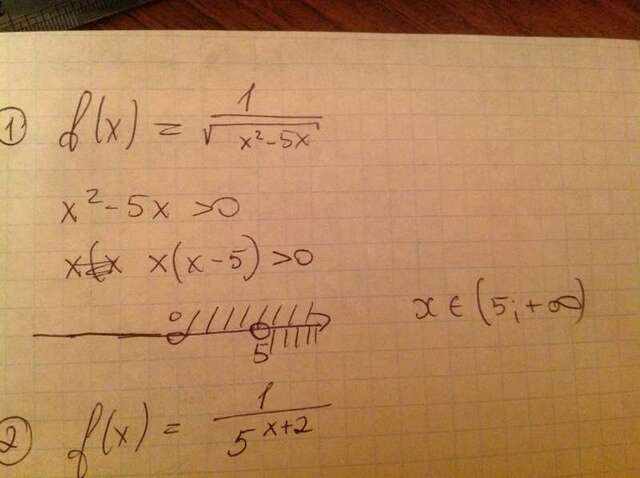 1) f(x) = 1/√(x²-5x)
x²-5x >0
x(x-5) >0
0
5
x ∈ (5; +∞)
2) f(x) = 1/5^(x+2)